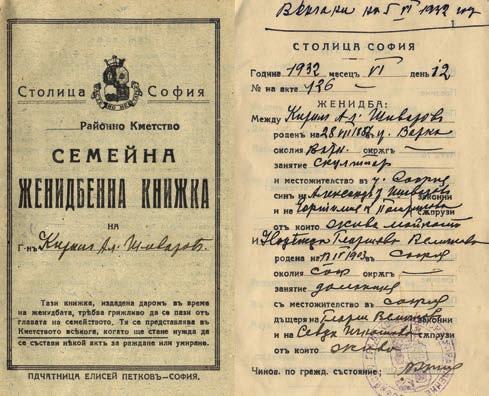 Столица София
Районно Кметство
СЕМЕЙНА
ЖЕНИДБЕННА КНИЖКА
НА
Г-нъ Кирил Ал. Шиваровъ.
Тази книжка, издадена даромъ въ време
на женидбата, трѣбва грижливо да се пази отъ
главата на семейството. Тя се представлява въ
Кметството всѣкога, когато ще стане нужда да
се състави нѣкой актъ за раждане или умиране.
ПЕЧАТНИЦА ЕЛИСЕЙ ПЕТКОВЪ-СОФИЯ.
1932 год
1
СТОЛИЦА СОФИЯ
Година 1932 месецъ VI день 12
№ на акте 126 —
ЖЕНИДБА:
Между Кирил Ал. Шиваровъ
роденъ на 28 VII въ г. Варна
околия Варн. окръгъ —
занятие скулпторъ
и местожителство въ г. София
синъ на Александър Шиваровъ законни
и на съпрузи
отъ които
И Надежда Георгиева
родена на 17 IV 1903 въ София
околия Соф окръгъ —
занятие домакиня
съ местожителство въ София
дъщеря на Георги законни
и на Севда съпрузи
отъ които живи
Чинов. по гражд. състояние;